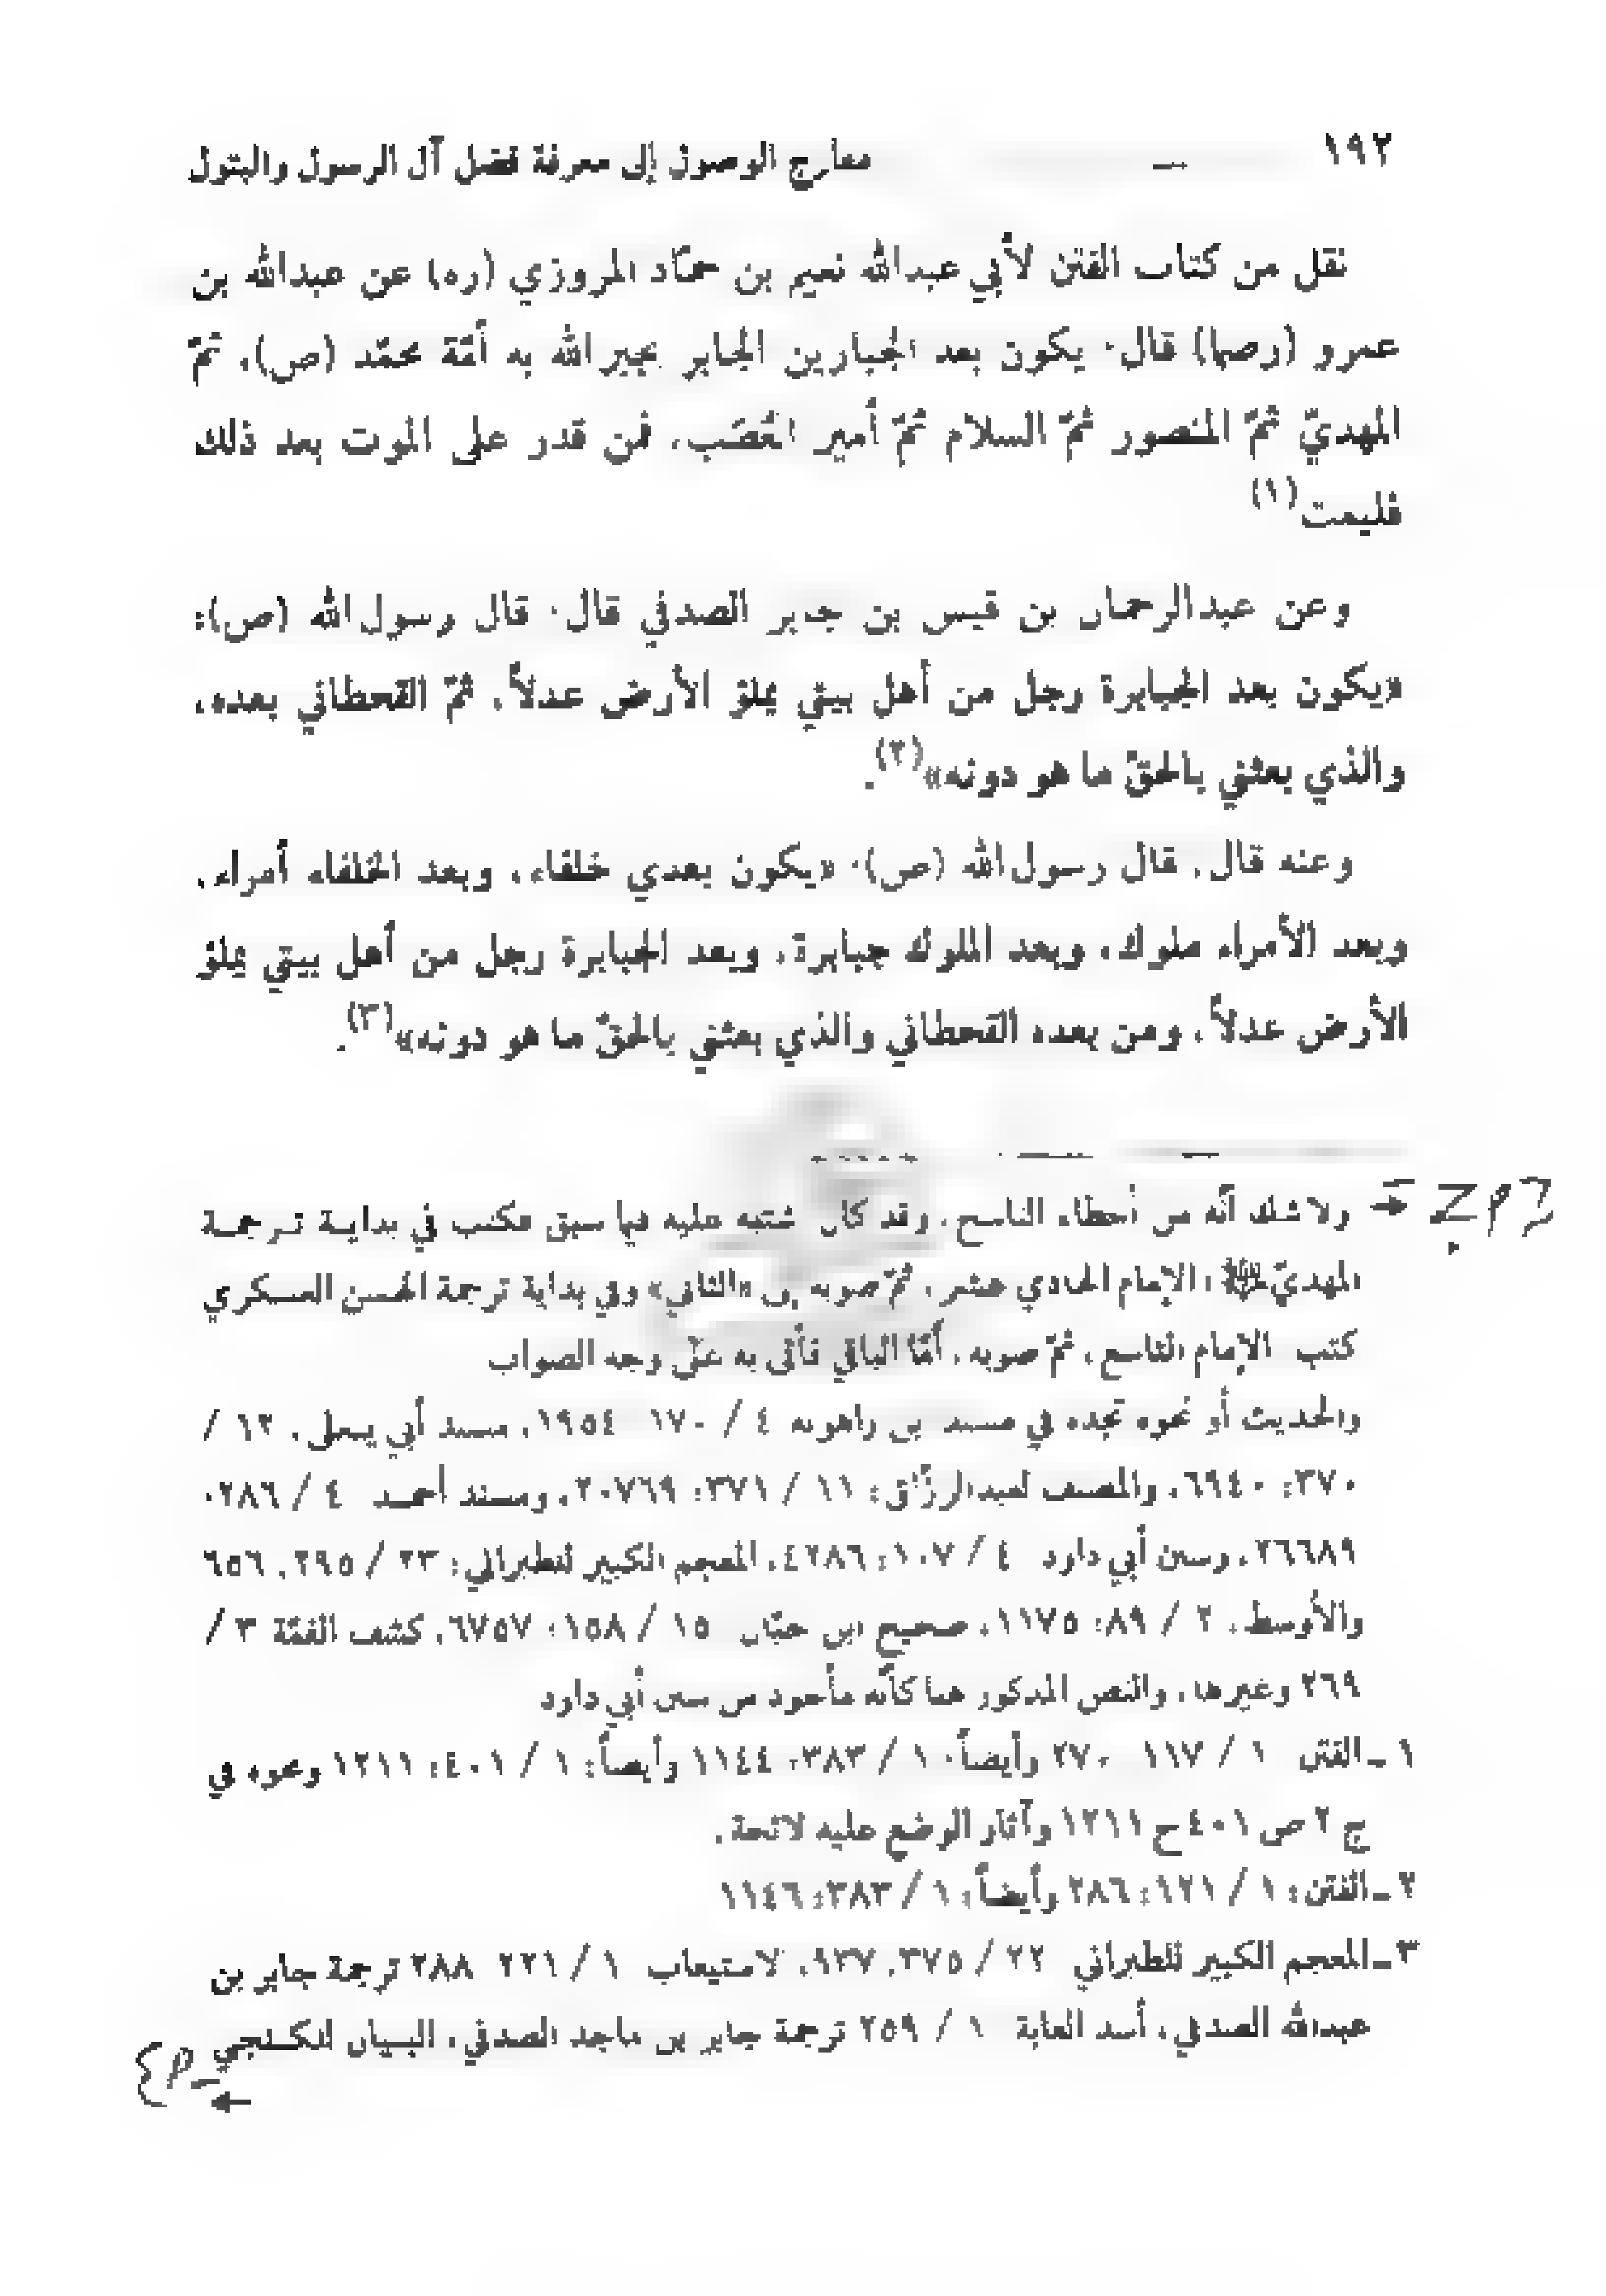 ١٩٢ معارج الوصول إلى معرفة فضل آل الرسول والبتول
نقل من كتاب الفتن لأبي عبدالله نعيم بن حمّاد المروزي (ره) عن عبدالله بن
عمرو (رضها) قال: يكون بعد الجبارين الجابر يجبر الله به أمّة محمّد (ص)، ثمّ
المهديّ ثمّ المنصور ثمّ السلام ثمّ أمير العُصَب، فمن قدر على الموت بعد ذلك
فليمت(١)
وعن عبدالرحمان بن قيس بن جابر الصدفي قال: قال رسول الله (ص):
«يكون بعد الجبابرة رجل من أهل بيتي يملؤ الأرض عدلاً، ثمّ القحطاني بعده،
والذي بعثني بالحقّ ما هو دونه»(٢).
وعنه قال: قال رسول الله (ص): «يكون بعدي خلفاء، وبعد الخلفاء أمراء،
وبعد الأمراء ملوك، وبعد الملوك جبابرة، وبعد الجبابرة رجل من أهل بيتي يملؤ
الأرض عدلاً، ومن بعده القحطاني والذي بعثني بالحقّ ما هو دونه»(٣).
ولا شك أنّه من أخطاء الناسخ، وقد كان اشتبه عليه فيما سبق فكتب في بداية ترجمة
المهديّ الإمام الحادي عشر، ثمّ صوبه إلى «الثاني» وفي بداية ترجمة الحسن العسكري
كتب الإمام التاسع، ثمّ صوبه، أمّا الباقي فأتى به على وجه الصواب
والحديث أو نحوه تجده في مسند ابن راهويه ٤ / ١٧٠ ١٩٥٤، مسند أبي يعلى، ١٢ /
٣٧٠: ٦٩٤٠، والمصنف لعبدالرزّاق: ١١ / ٣٧١: ٢٠٧٦٩، ومسند أحمد ٤ / ٢٨٦٠
٢٦٦٨٩، وسنن أبي داود ٤ / ١٠٧: ٤٢٨٦، المعجم الكبير للطبراني: ٢٣ / ٢٩٥، ٦٥٦
والأوسط، ٢ / ٨٩: ١١٧٥، صحيح ابن حبّان ١٥ / ١٥٨: ٦٧٥٧، كشف الغمّة ٣ /
٢٦٩ وغيرها، والنص المذكور هنا كأنّه مأخوذ من سنن أبي داود
١ ـ الفتن ١ / ١١٧ ٢٧٠ وأيضاً: ١ / ٣٨٣: ١١٤٤ وأيضاً: ١ / ٤٠١: ١٢١١ ونحوه في
ج ٢ ص ٤٠١ ح ١٢١١ وآثار الوضع عليه لائحة.
٢ ـ الفتن: ١ / ١٢١: ٢٨٦ وأيضاً: ١ / ٣٨٣: ١١٤٦
٣ ـ المعجم الكبير للطبراني ٢٢ / ٣٧٥، ٩٣٧، الاستيعاب ١ / ٢٢١ ٢٨٨ ترجمة جابر بن
عبدالله الصدفي، أسد الغابة ١ / ٢٥٩ ترجمة جابر بن ماجد الصدفي، البيان للكنجي